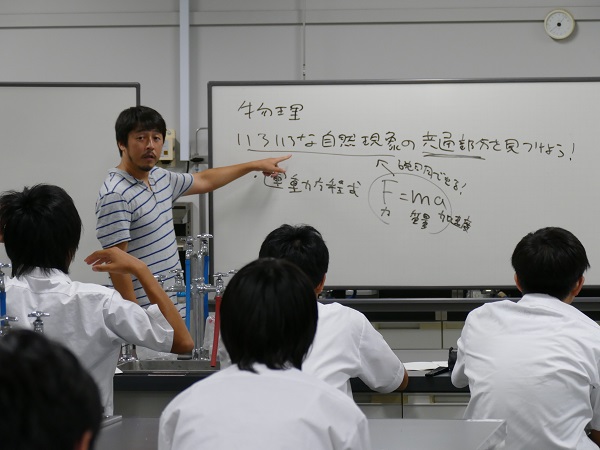 物理
いろいろな自然現象の共通部分を見つけよう！
説明できる！
・運動方程式
F=ma
力 質量 加速度